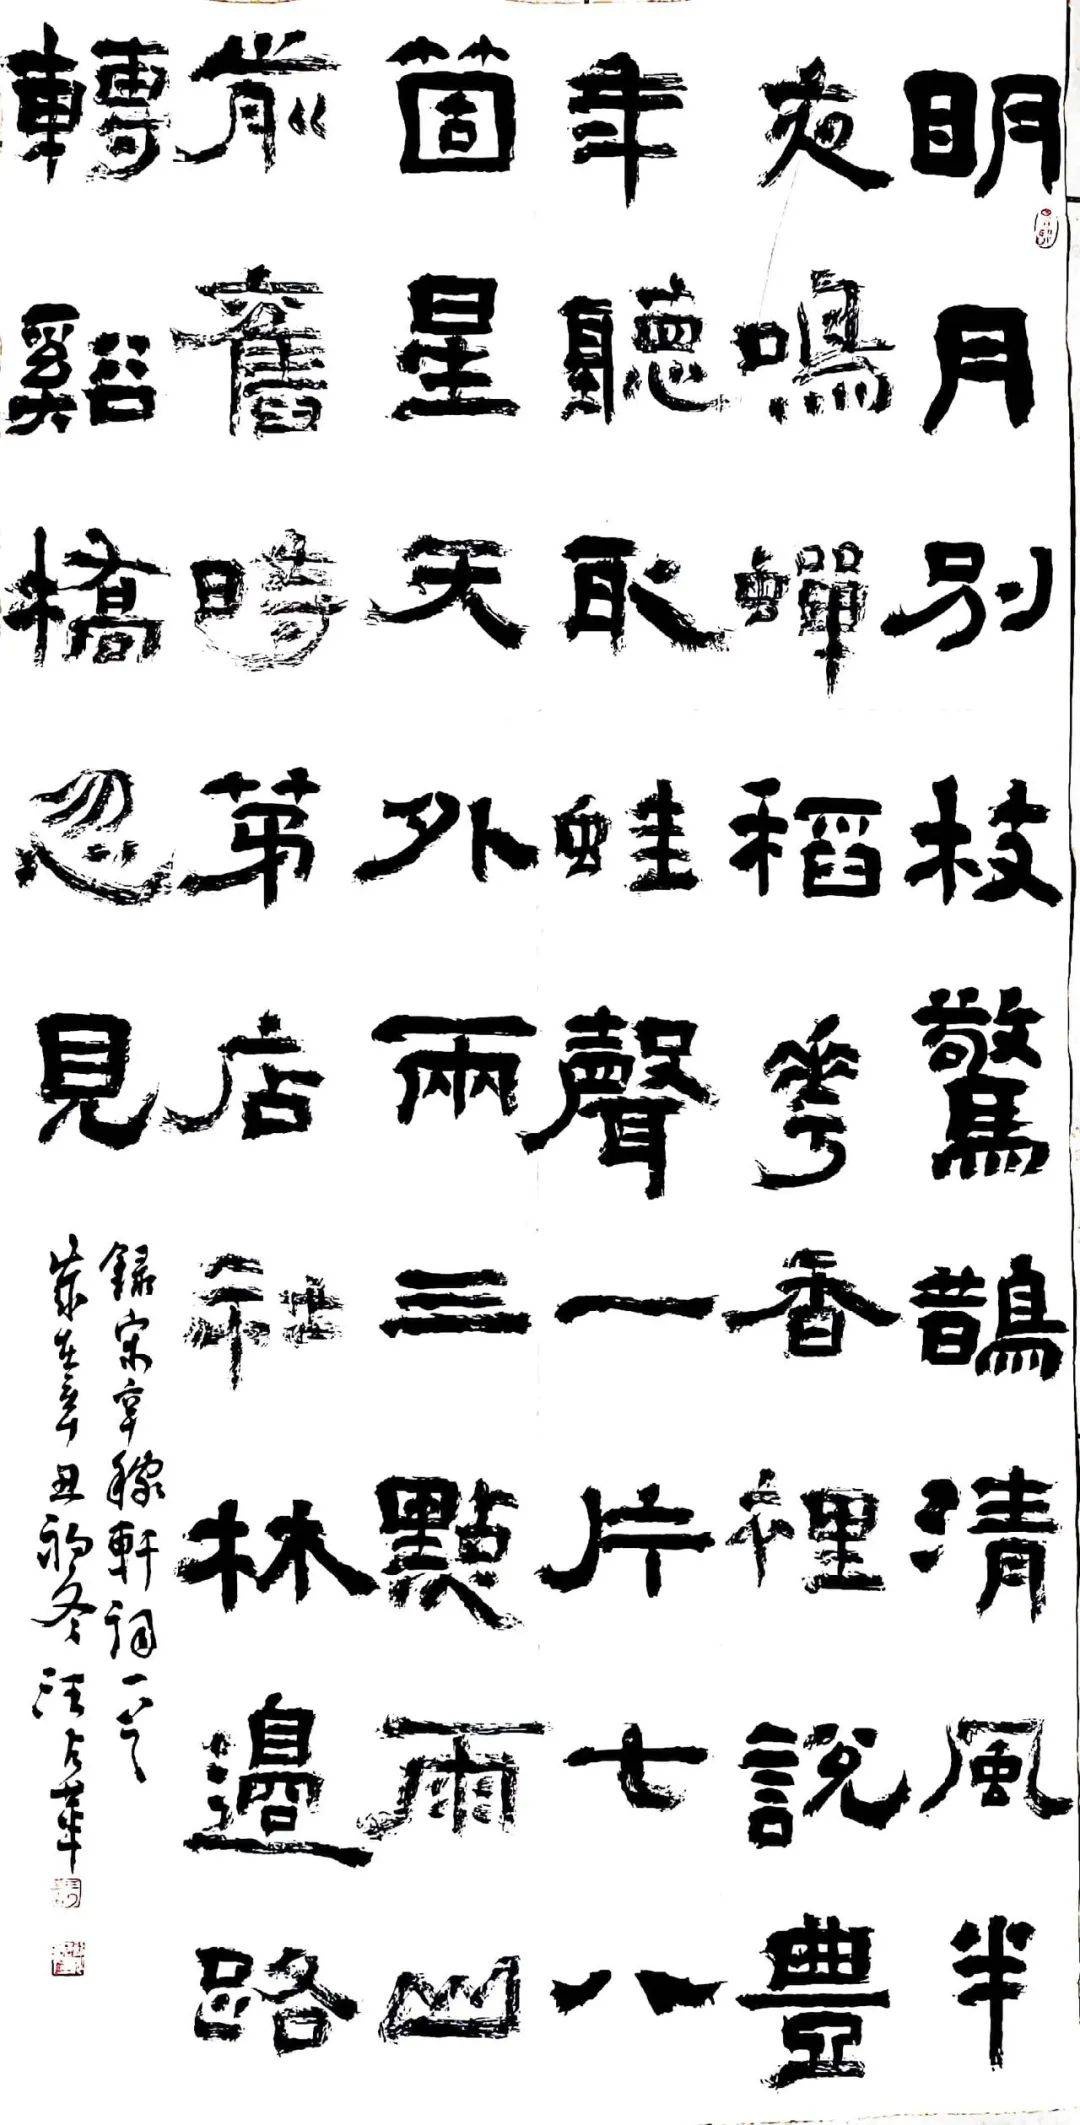 眀月別枝驚鵲清風半
夜鳴蟬稻華香裡說豐
年聽取蛙聲一片七八
箇星天外兩三點雨山
前舊時茅店社林邊路
轉谿橋忽見
錄宋辛稼軒詞一首
歲在辛丑初冬汪占